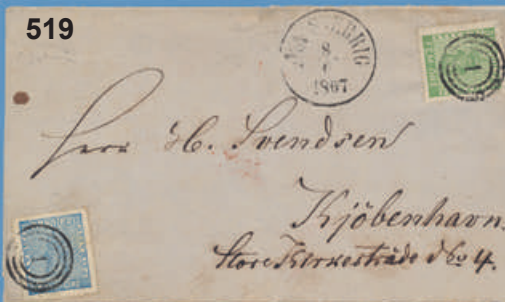 519
SVERRIG
8
1
1867
Herr H. Svendsen
Kjöbenhavn.
Store Kirkestræde No 4.
1
1